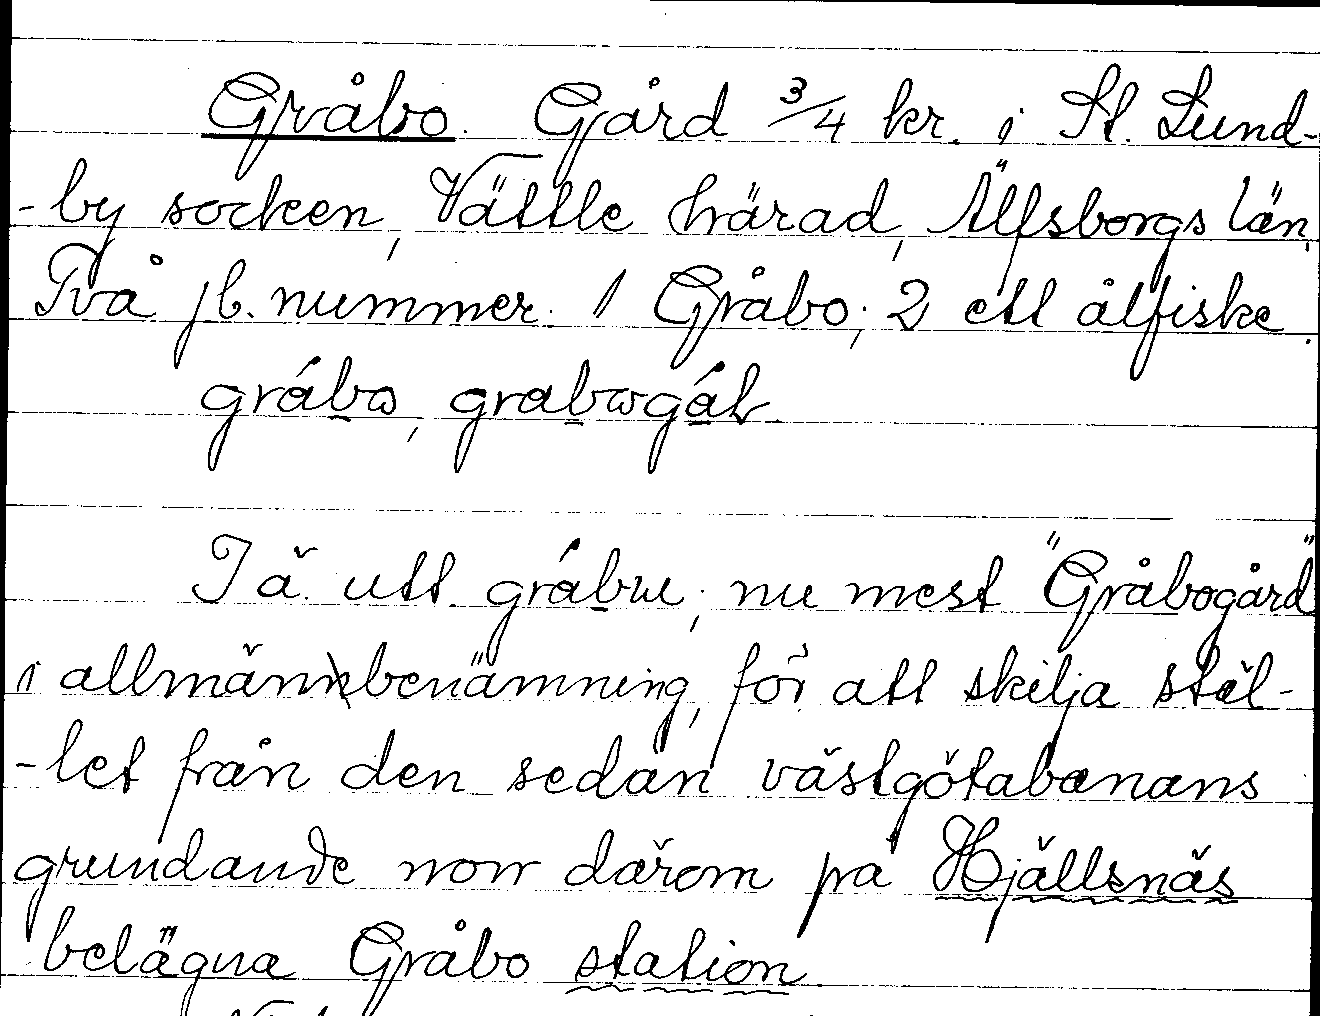 Gråbo. Gård 3/4 kr. i St. Lund-
-by socken, Vättle härad, Älfsborgs län,
Två jb. nummer. 1 Gråbo; 2 ett ålfiske.
grábo, grabogáḷ
I ä. utt. grábu; nu mest "Gråbogård"
i allmän benämning, för att skilja stäl-
-let från den sedan västgötabanans
grundande norr därom på Hjällsnäs
belägna Gråbo station